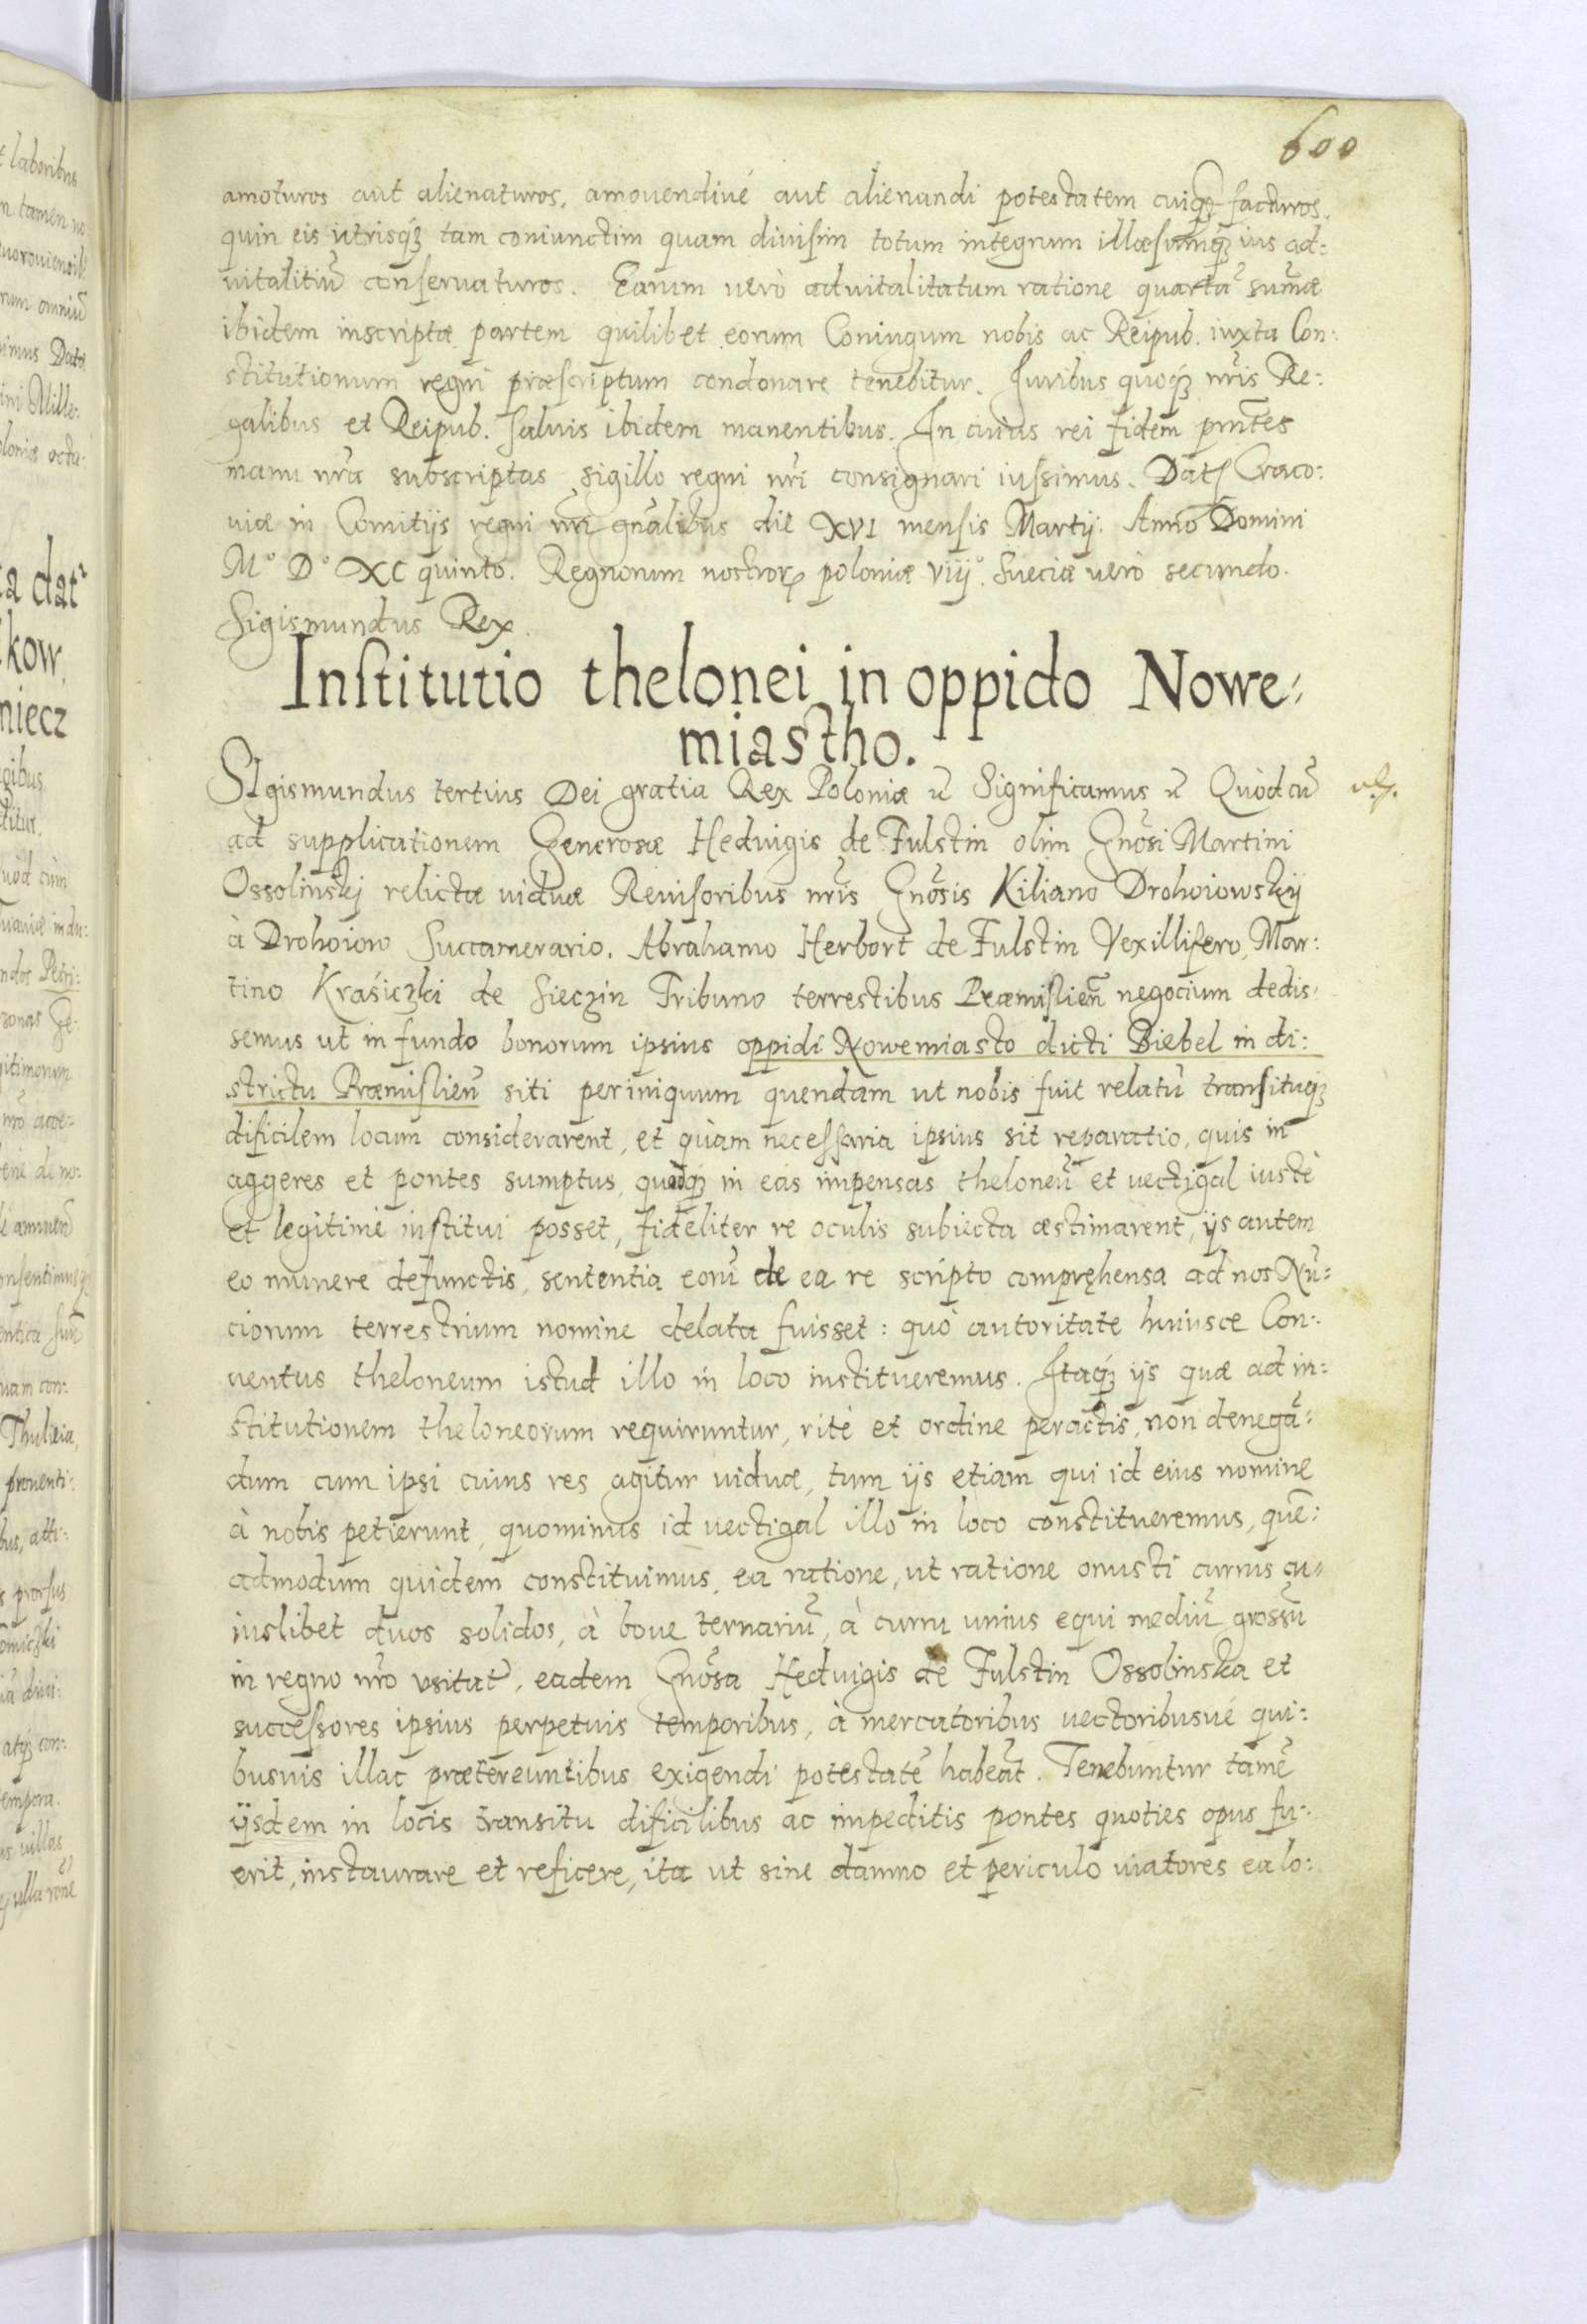 600
amoturos aut alienaturos, amouendiué aut alienandi potestatem cuiqȝ facturos,
quin eis utrisqȝ tam coniunctim quam diuisim totum integrum illæsumqȝ ius ad:
uitalitiū conseruaturos. Earum uerò aduitalitatum ratione quartā sum̄æ
ibidem inscriptæ partem quilibet eorum Coniugum nobis ac Reipub. iuxta Con:
stitutionum regni præscriptum condonare tenebitur. Iuribus quoqȝ nr̄is Re:
galibus et Reipub. saluis ibidem manentibus. In cuius rei fidem pnt̄es
manu nr̄a subscriptas sigillo regni nr̄i consignari iussimus. Datꝭ Craco:
uiæ in Comitijs regni nr̄i gn̄alibus die XVI mensis Martij. Anno Domini
M° D° XC quinto. Regnorum nostroꝝ poloniæ viij°. Sueciæ uerò secundo.
Sigismundus Rex.
Institutio thelonei in oppido Nowe:
miastho.
SIgismundus tertius Dei gratia Rex Poloniæ ꝛc̄ Significamus ꝛc̄ Quòd cū
ad supplicationem Generosæ Heduigis de Fulstin olim Gn̄osi Martini
Ossolinskj relictæ uiduæ Reuisoribus nr̄is Gn̄osis Kiliano Drohoiowskij
à Drohoiow Succamerario. Abrahamo Herbort de Fulstin Vexillifero, Mar:
tino Krásiczki de Sieczin Tribuno terrestibus Præmislien̄ negocium dedis:
semus ut in fundo bonorum ipsius oppidi Nowemiasto dicti Biebel in di:
strictu Præmislien̄ siti periniquum quendam ut nobis fuit relatū transituqȝ
dificilem locum considerarent, et quàm necessaria ipsius sit reparatio, quis in
aggeres et pontes sumptus, quodqȝ in eás impensas theloneū et uectigal iustè
et legitimè institui posset, fideliter re oculis subiecta æstimarent, ijs autem
eo munere defunctis, sententia eorū de ea re scripto compręhensa ad nos Nū:
ciorum terrestrium nomine delata fuisset: quò autoritate huiusce Con:
uentus theloneum istud illo in loco institueremus. Itaqȝ ijs quæ ad in:
stitutionem theloneorum requiruntur, ritè et ordine peractis, non denegā:
dum cum ipsi cuius res agitur uiduæ, tum ijs etiam qui id eius nomine
à nobis petierunt, quominus id uectigal illo in loco constitueremus, quē:
admodum quidem constituimus, ea ratione, ut ratione onusti currus cu:
iuslibet duos solidos, à boue ternariū, à curru unius equi mediū grossū
in regno nr̄o usitat̄, eadem Gn̄osa Heduigis de Fulstin Ossolinska et
successores ipsius perpetuis temporibus, à mercatoribus uectoribusué qui:
busuis illac prætereuntibus exigendi potestatē habeāt. Tenebuntur tamē
ijsdem in locis transitu dificilibus ac impeditis pontes quoties opus fu:
erit, instaurare et reficere, ita ut sine damno et periculo uiatores ea lo: